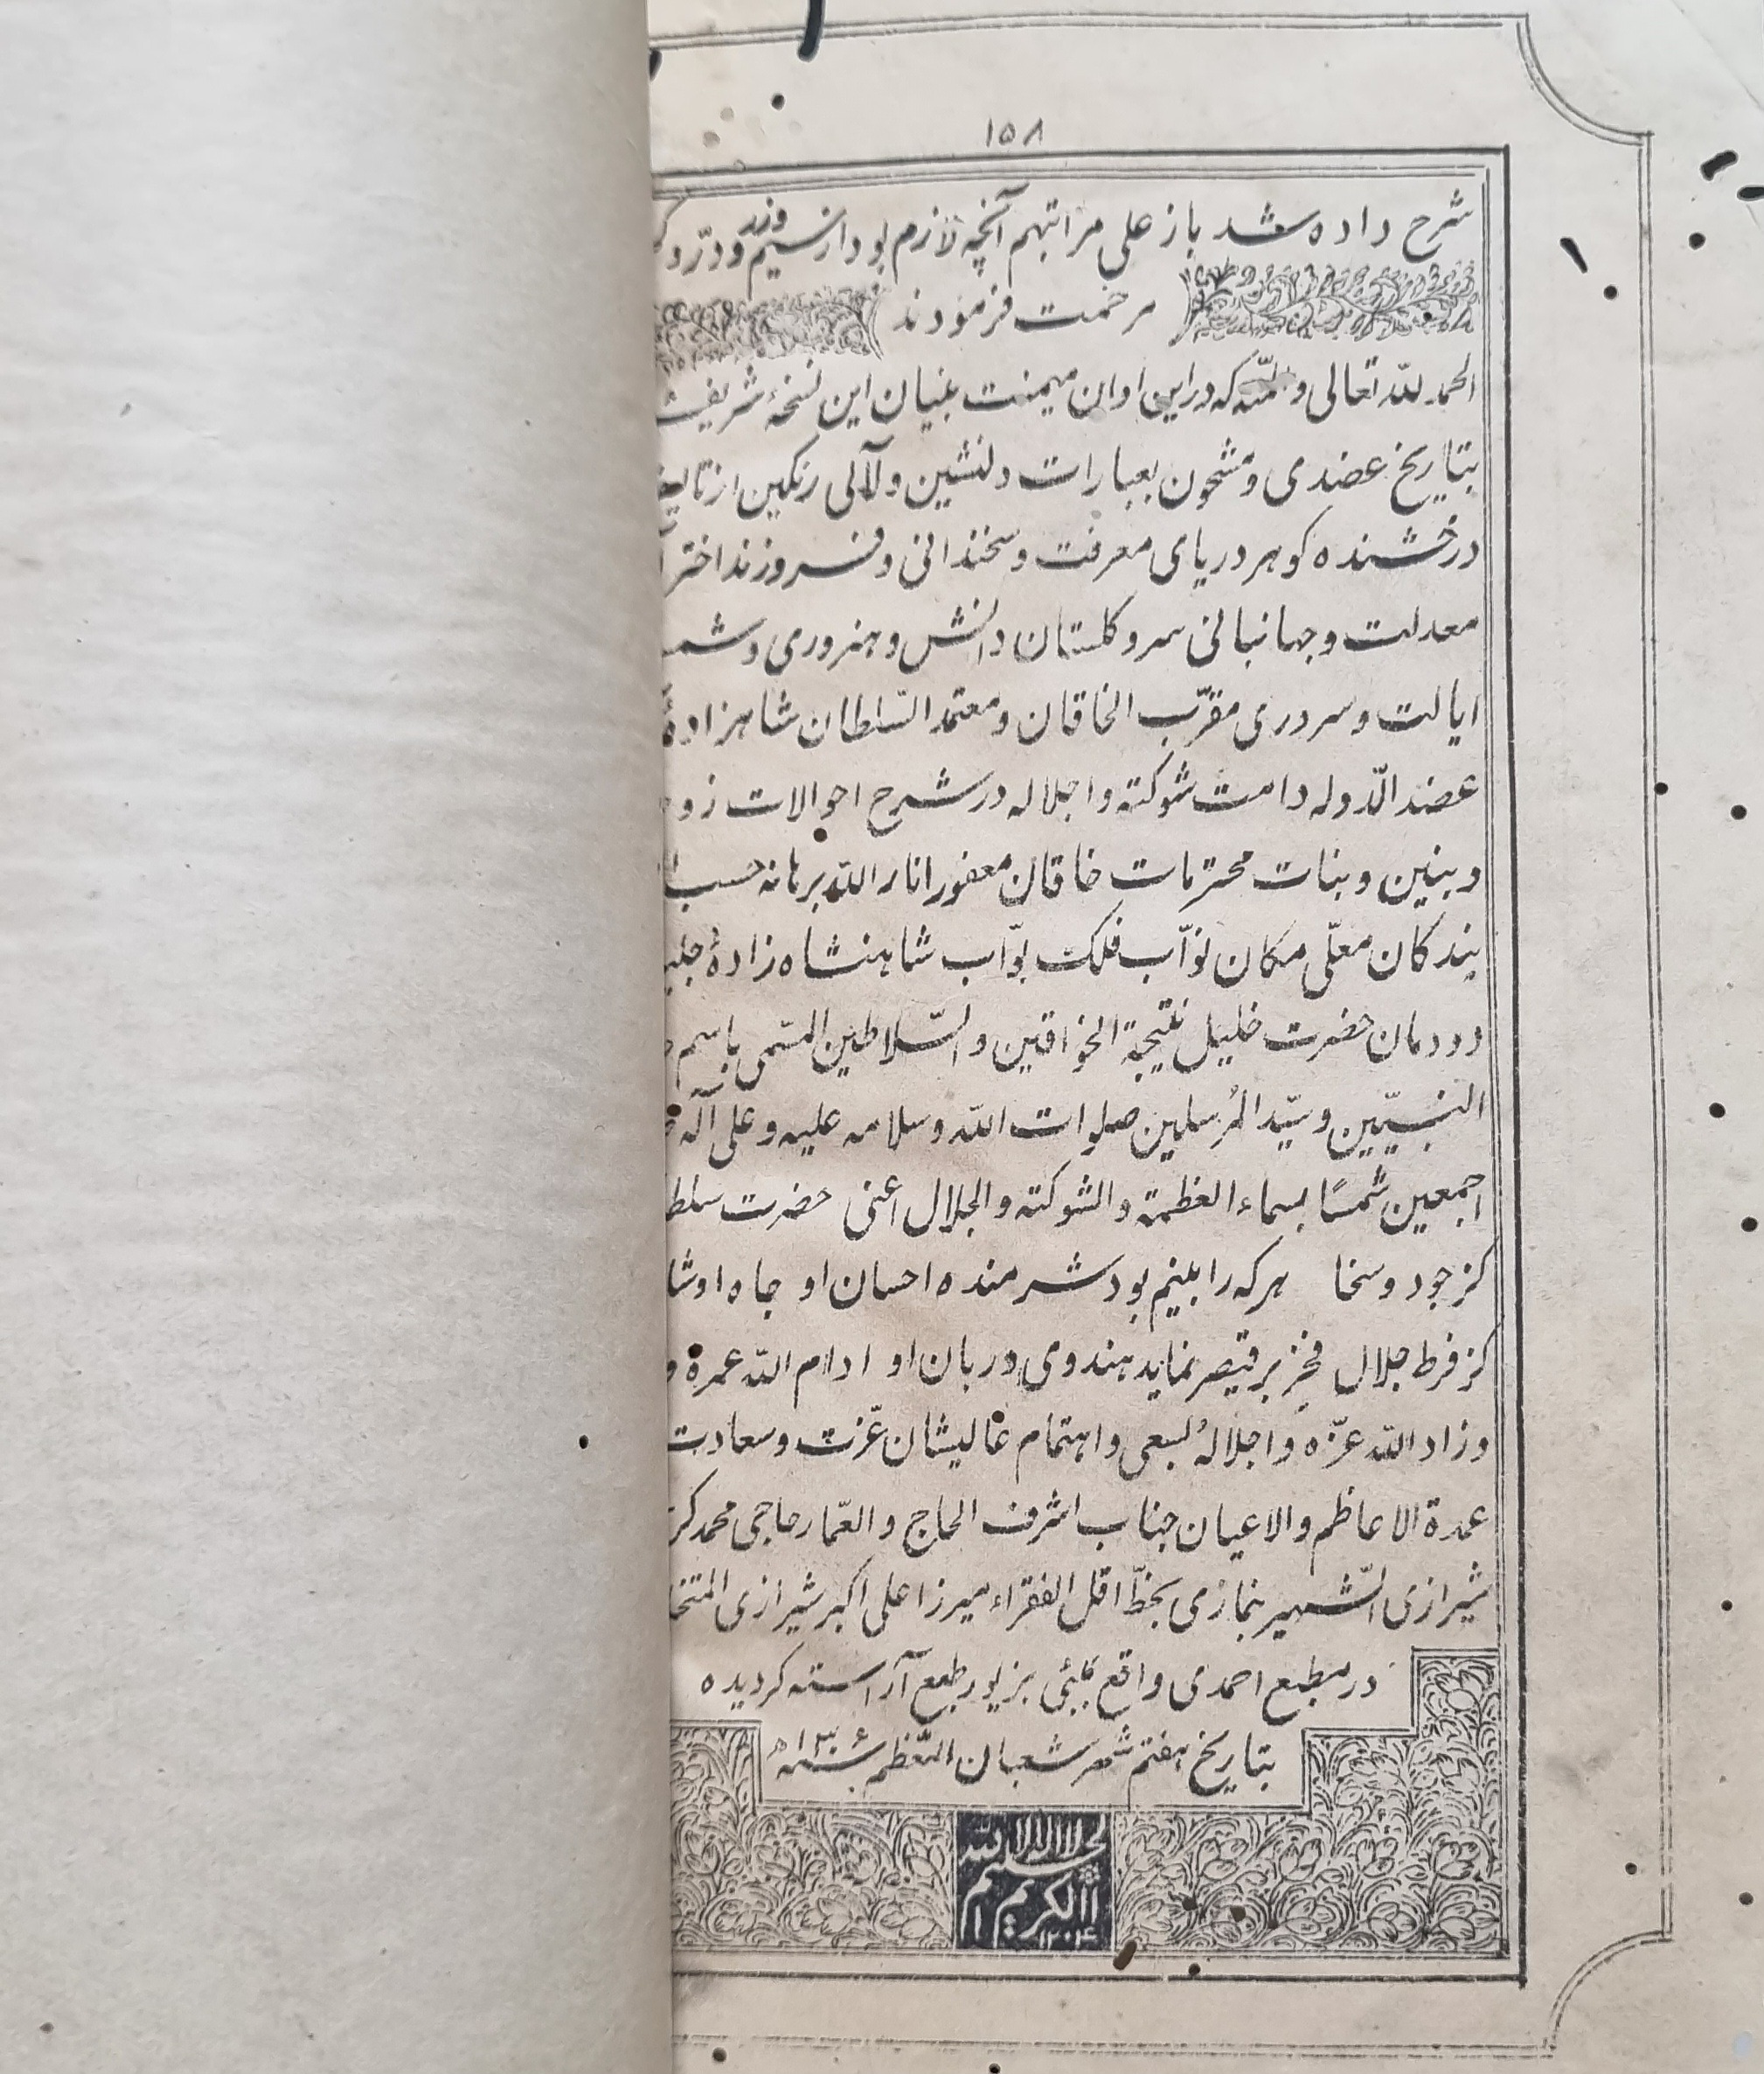 ۱۵۸
شرح داده شد باز علی مراتبهم آنچه لازم بود از سیم و زر و درّ و
مرحمت فرمودند
الحمد للّه تعالی و المنّه که در این اوان میمنت بنیان این نسخهٔ شریف
بتاریخ عضدی و مشحون بعبارات دلنشین و لآلی رنکین از تالیف
درخشنده کوهر دریای معرفت و سخندانی و فروزنداختر
معدلت و جهانبانی سرو کلستان دانش و هنروری و
ایالت و سروری مقرّب الخاقان و معتمد السّلطان شاهزادهٔ
عضد الدّوله دامت شوکته و اجلاله در شرح احوالات
و بنین و بنات محترمات خاقان مغفور انار اللّه برهانه حسب
بندکان معلّی مکان نوّاب فلک بوّاب شاهنشاه زادهٔ
دودمان حضرت خلیل نتیجة الخواقین و السّلاطین المسمّی باسم
النبییّین و سیّد المُرسلین صلوات اللّه و سلامه علیه و علی آله
اجمعین شمسًا لسماء العظمة و الشوکته و الجلال اعنی حضرت
کز جود و سخا هر که را بینم بود شرمنده احسان او جاه او
کز فرط جلال فخر بر قیصر نماید هندوی دربان او ادام اللّه عمره
و زاد اللّه عزّه و اجلالهُ لسعی و اهتمام عالیشان عزّت و سعادت
عمدة الاعاظم و الاعیان جناب اشرف الحاج و العمّار حاجی محمد
شیرازی الشّهیر بنمازی بخطّ اقل الفقراء میرزا علی اکبر شیرازی
در مطبع احمدی واقع بمبئی بزیور طبع آراسته کردیده
بتاریخ هفتم شهر شعبان المعّظم سنه ۱۳۰۶ه